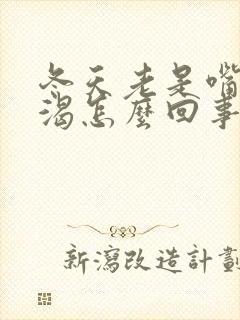 冬天老是嘴
渴怎麼回事
新瀉改造計劃